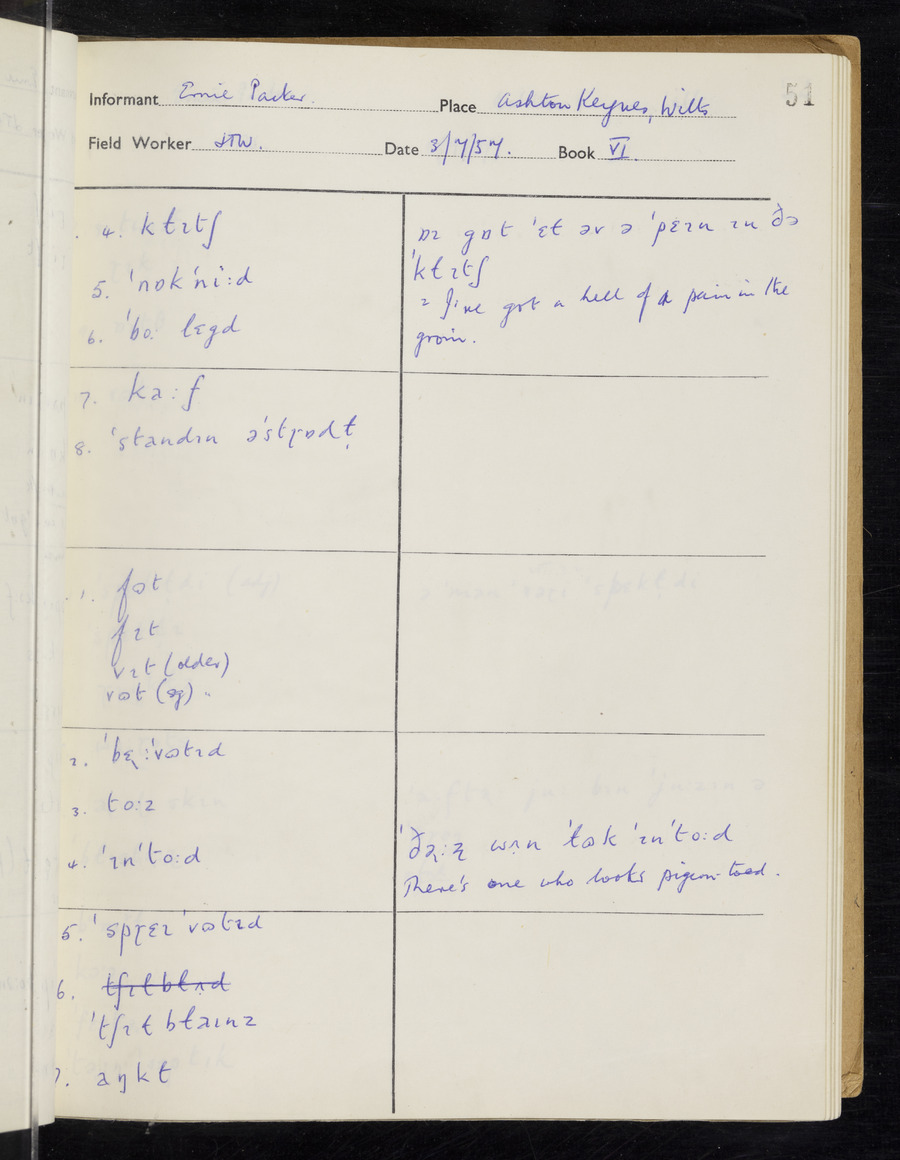 Informant Ernie Packer. Place Ashton Keynes, Wilts 51
Field Worker JTW. Date 3/7/57. Book VI.
4. kɫɪtʃ
5. ˈnɒkˈniːd
6. ˈboˑ lɛgd
ɒɪ gɒt ˈɛɫ əv ə ˈpɛɪn ɪn ðə
ˈkɫɪtʃ
= I've got a hell of a pain in the
groin.
7. kaːf
8. ˈstandɪn əˈstɽɒdɫ̩
1. fɷt
fɪt
vɪt (older)
vɷt (sg) "
2. ˈbɛ̨ːˈvɷtɪd
3. toːz
4. ˈɪnˈtoːd
ˈðəɽːz wʌn ˈɫɷk ˈɪnˈtoːd
There's one who looks pigeon-toed.
5. ˈspɽɛɪˈvɷtɪd
6. tʃɪɫbɫʌd
ˈtʃɪɫbɫaɪnz
7. aŋkɫ